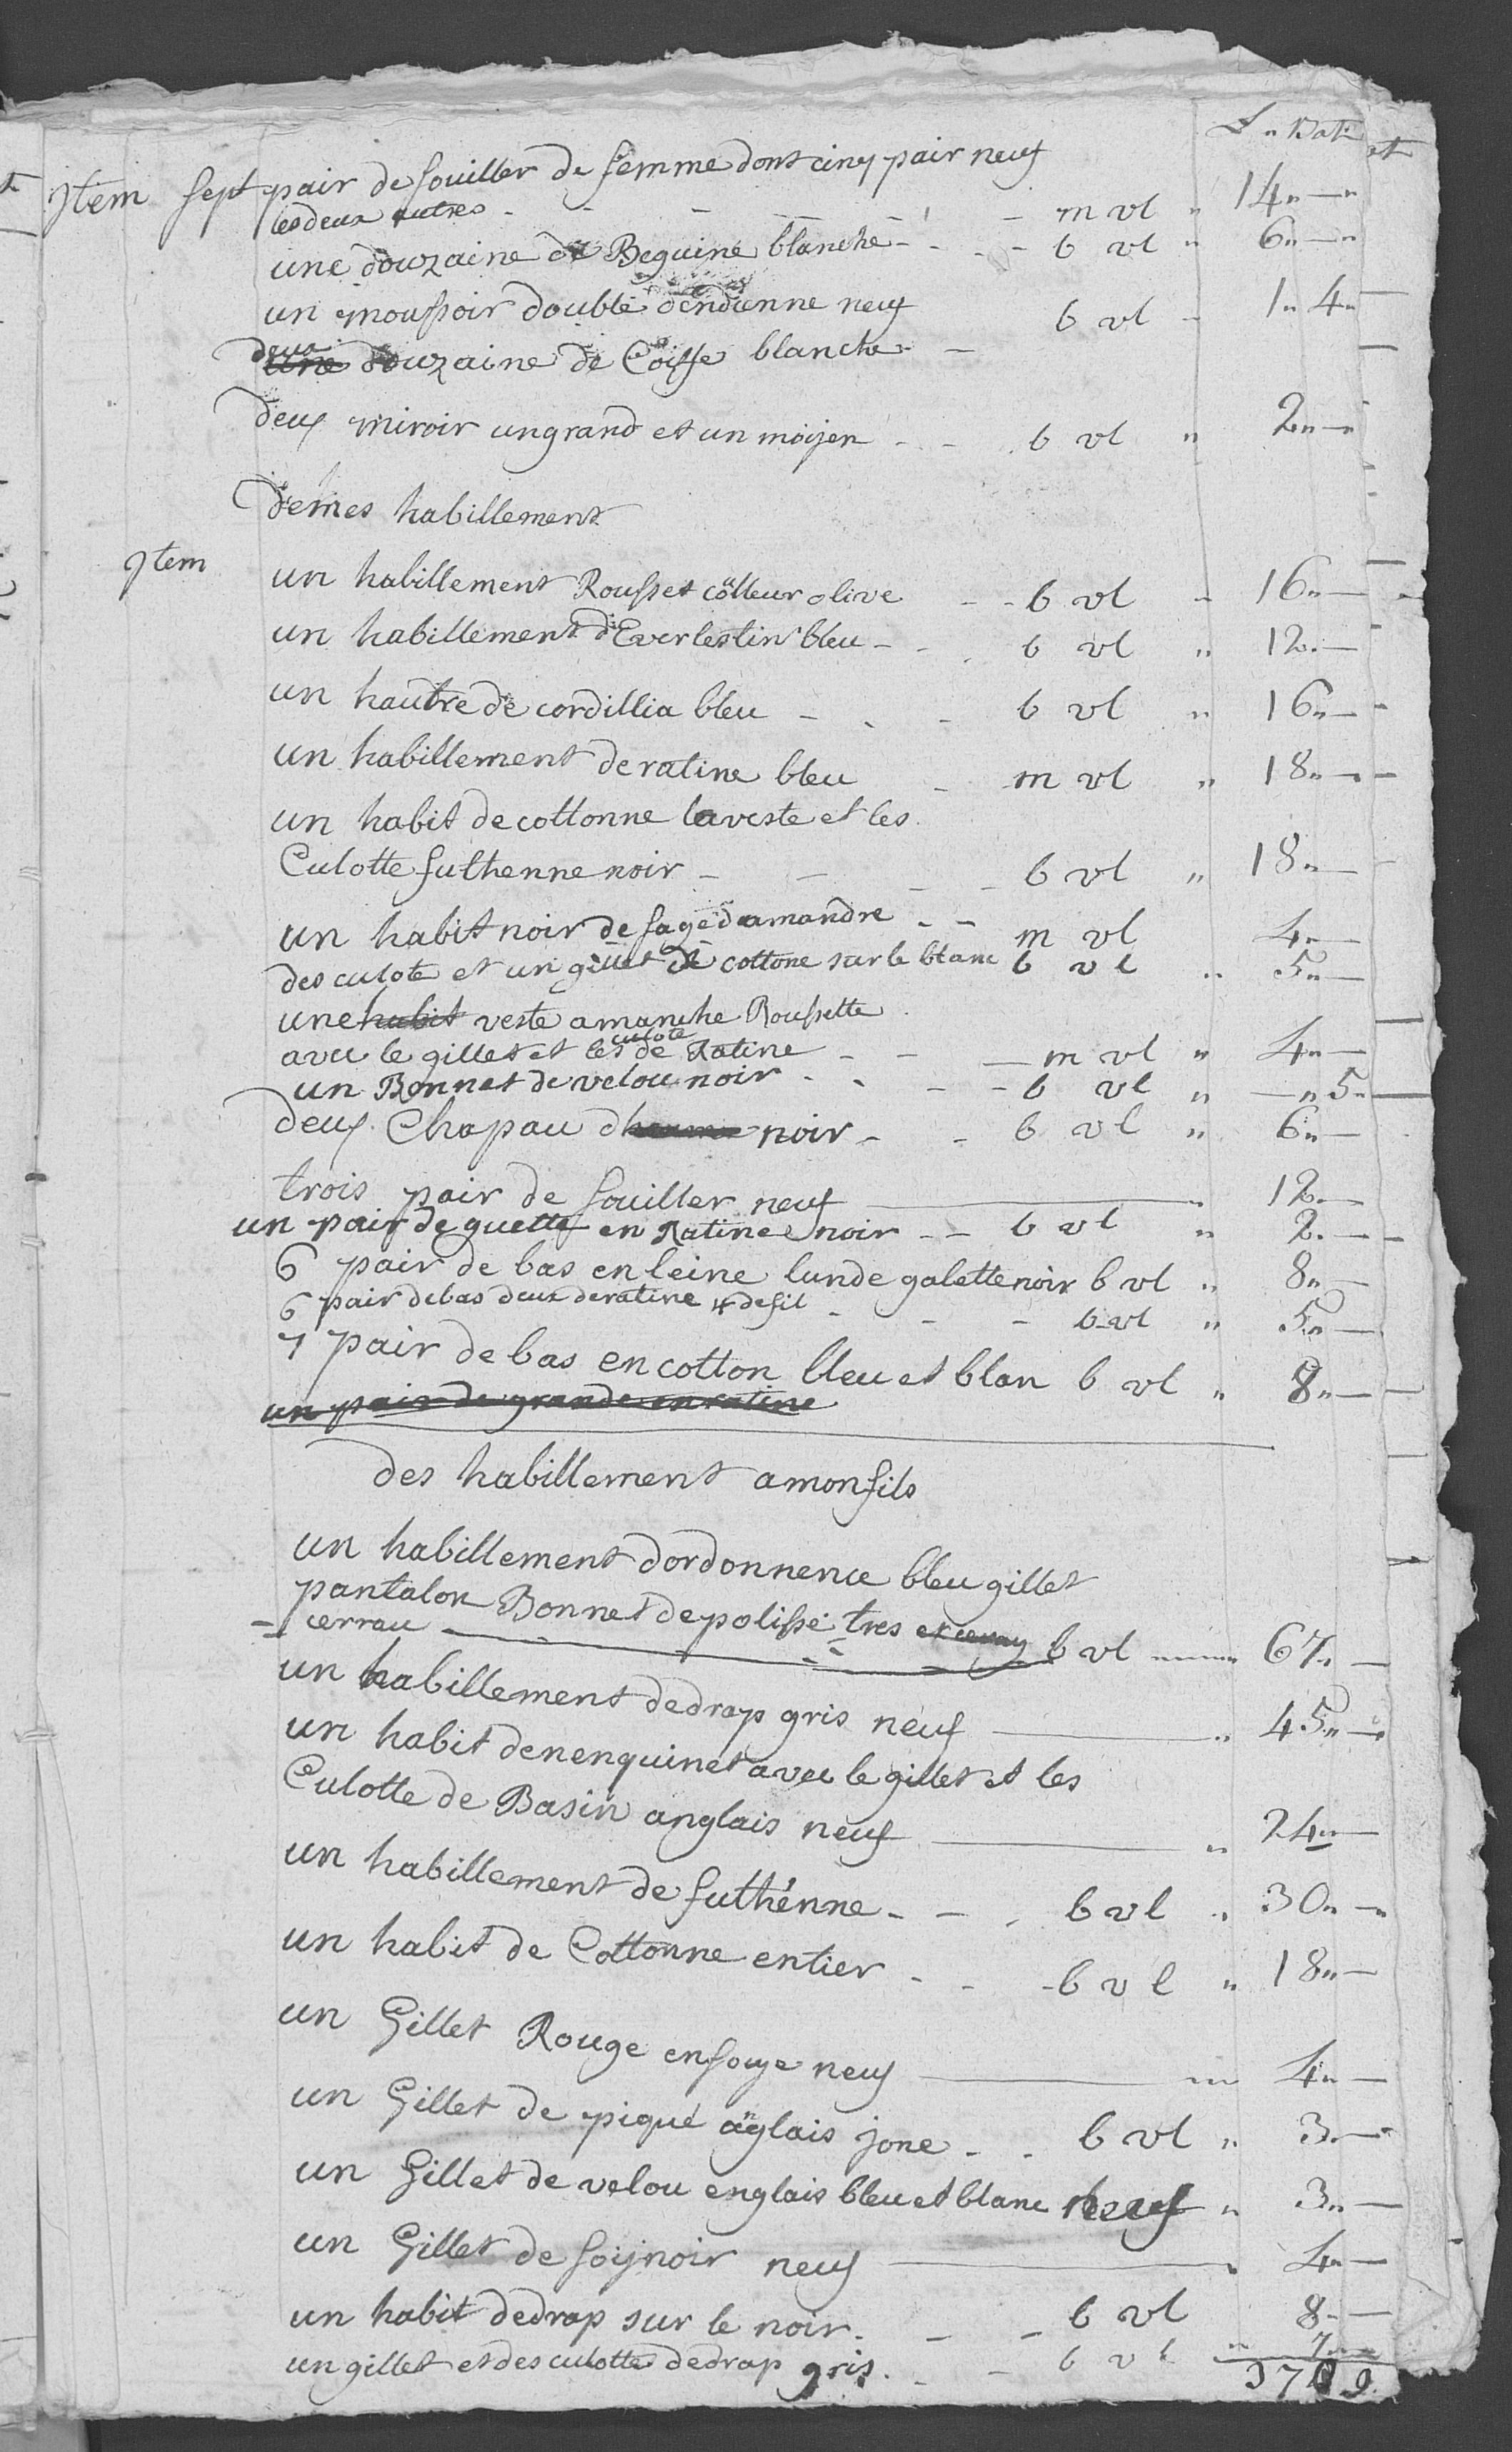 L " Bat
Item sept pair de souiller de femme dont cinq pair neuf
les deux autres - - - - - m vl " 14 " — "
une douzaine de Beguine blanche - - - b vl " 6 " — "
un moussoir doublé dendienne neuf b vl - 1 " 4 "
deux ~~une~~ douzaine de Coiffe blanche - —
deux miroir un grand et un moijen - - b vl " 2 " — "
de mes habillement
Item un habillement Rousset coulleur olive - - b vl - 16 " —
un habillement d'Everlestin bleu - - b vl " 12 " —
un hautre de cordillia bleu - - - b vl " 16 " —
un habillement de ratine bleu - m vl " 18 " —
un habit de cottonne la veste et les
Culotte futhenne noir - - - - b vl " 18 " —
un habit noir de sagedamandre - - m vl 4 " —
des culote et un gillet de cottone sur le blanc b vl " 5 " —
une ~~habit~~ veste a manche Roussette
avec le gillet et les culote de Ratine - - — m vl " 4 " —
un Bonnet de velou noir - - - - b vl " — " 5 "
deux Chapau noir - - b vl " 6 " —
trois pair de souiller neuf — " 12 " —
un pair de guette en Ratine noir - - b vl " 2 " —
6 pair de bas en leine lun de galette noir b vl " 8 " —
6 pair de bas deux de ratine 4 de fil - - - b vl " 5 " —
7 pair de bas en cotton bleu et blan b vl " 8 " —
~~un pair de grande en ratine~~
des habillement a mon fils
un habillement dordonnence bleu gillet
pantalon Bonnet de polisse tres
cerrau — b vl " 67 " —
un habillement de drap gris neuf — " 45 " —
un habit de nenquinet avec le gillet et les
Culotte de Basin anglais neuf — " 24 " —
un habillement de futhénne - - - b vl " 30 " —
un habit de Cottonne entier - - - b vl " 18 " —
un Gillet Rouge en soye neuf — " 4 " —
un Gillet de piqué anglais jone - - b vl " 3 " —
un Gillet de velou englais bleu et blanc neuf " 3 " —
un Gillet de soij noir neuf — " 4 " —
un habit de drap sur le noir - - - b vl 8 " —
un gillet et des culotte de drap gris - - b vl " 7 " —